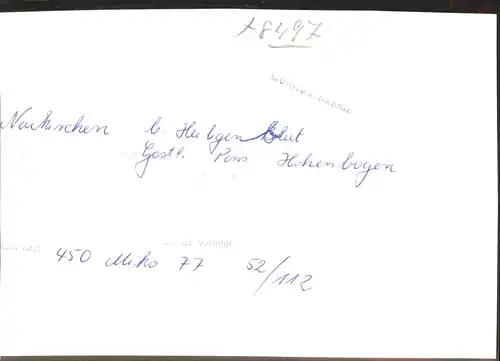 +8497
Neukirchen b. Heilgen Blut
Gasth. Pens Hohenbogen
450 Mirko 77 52/112